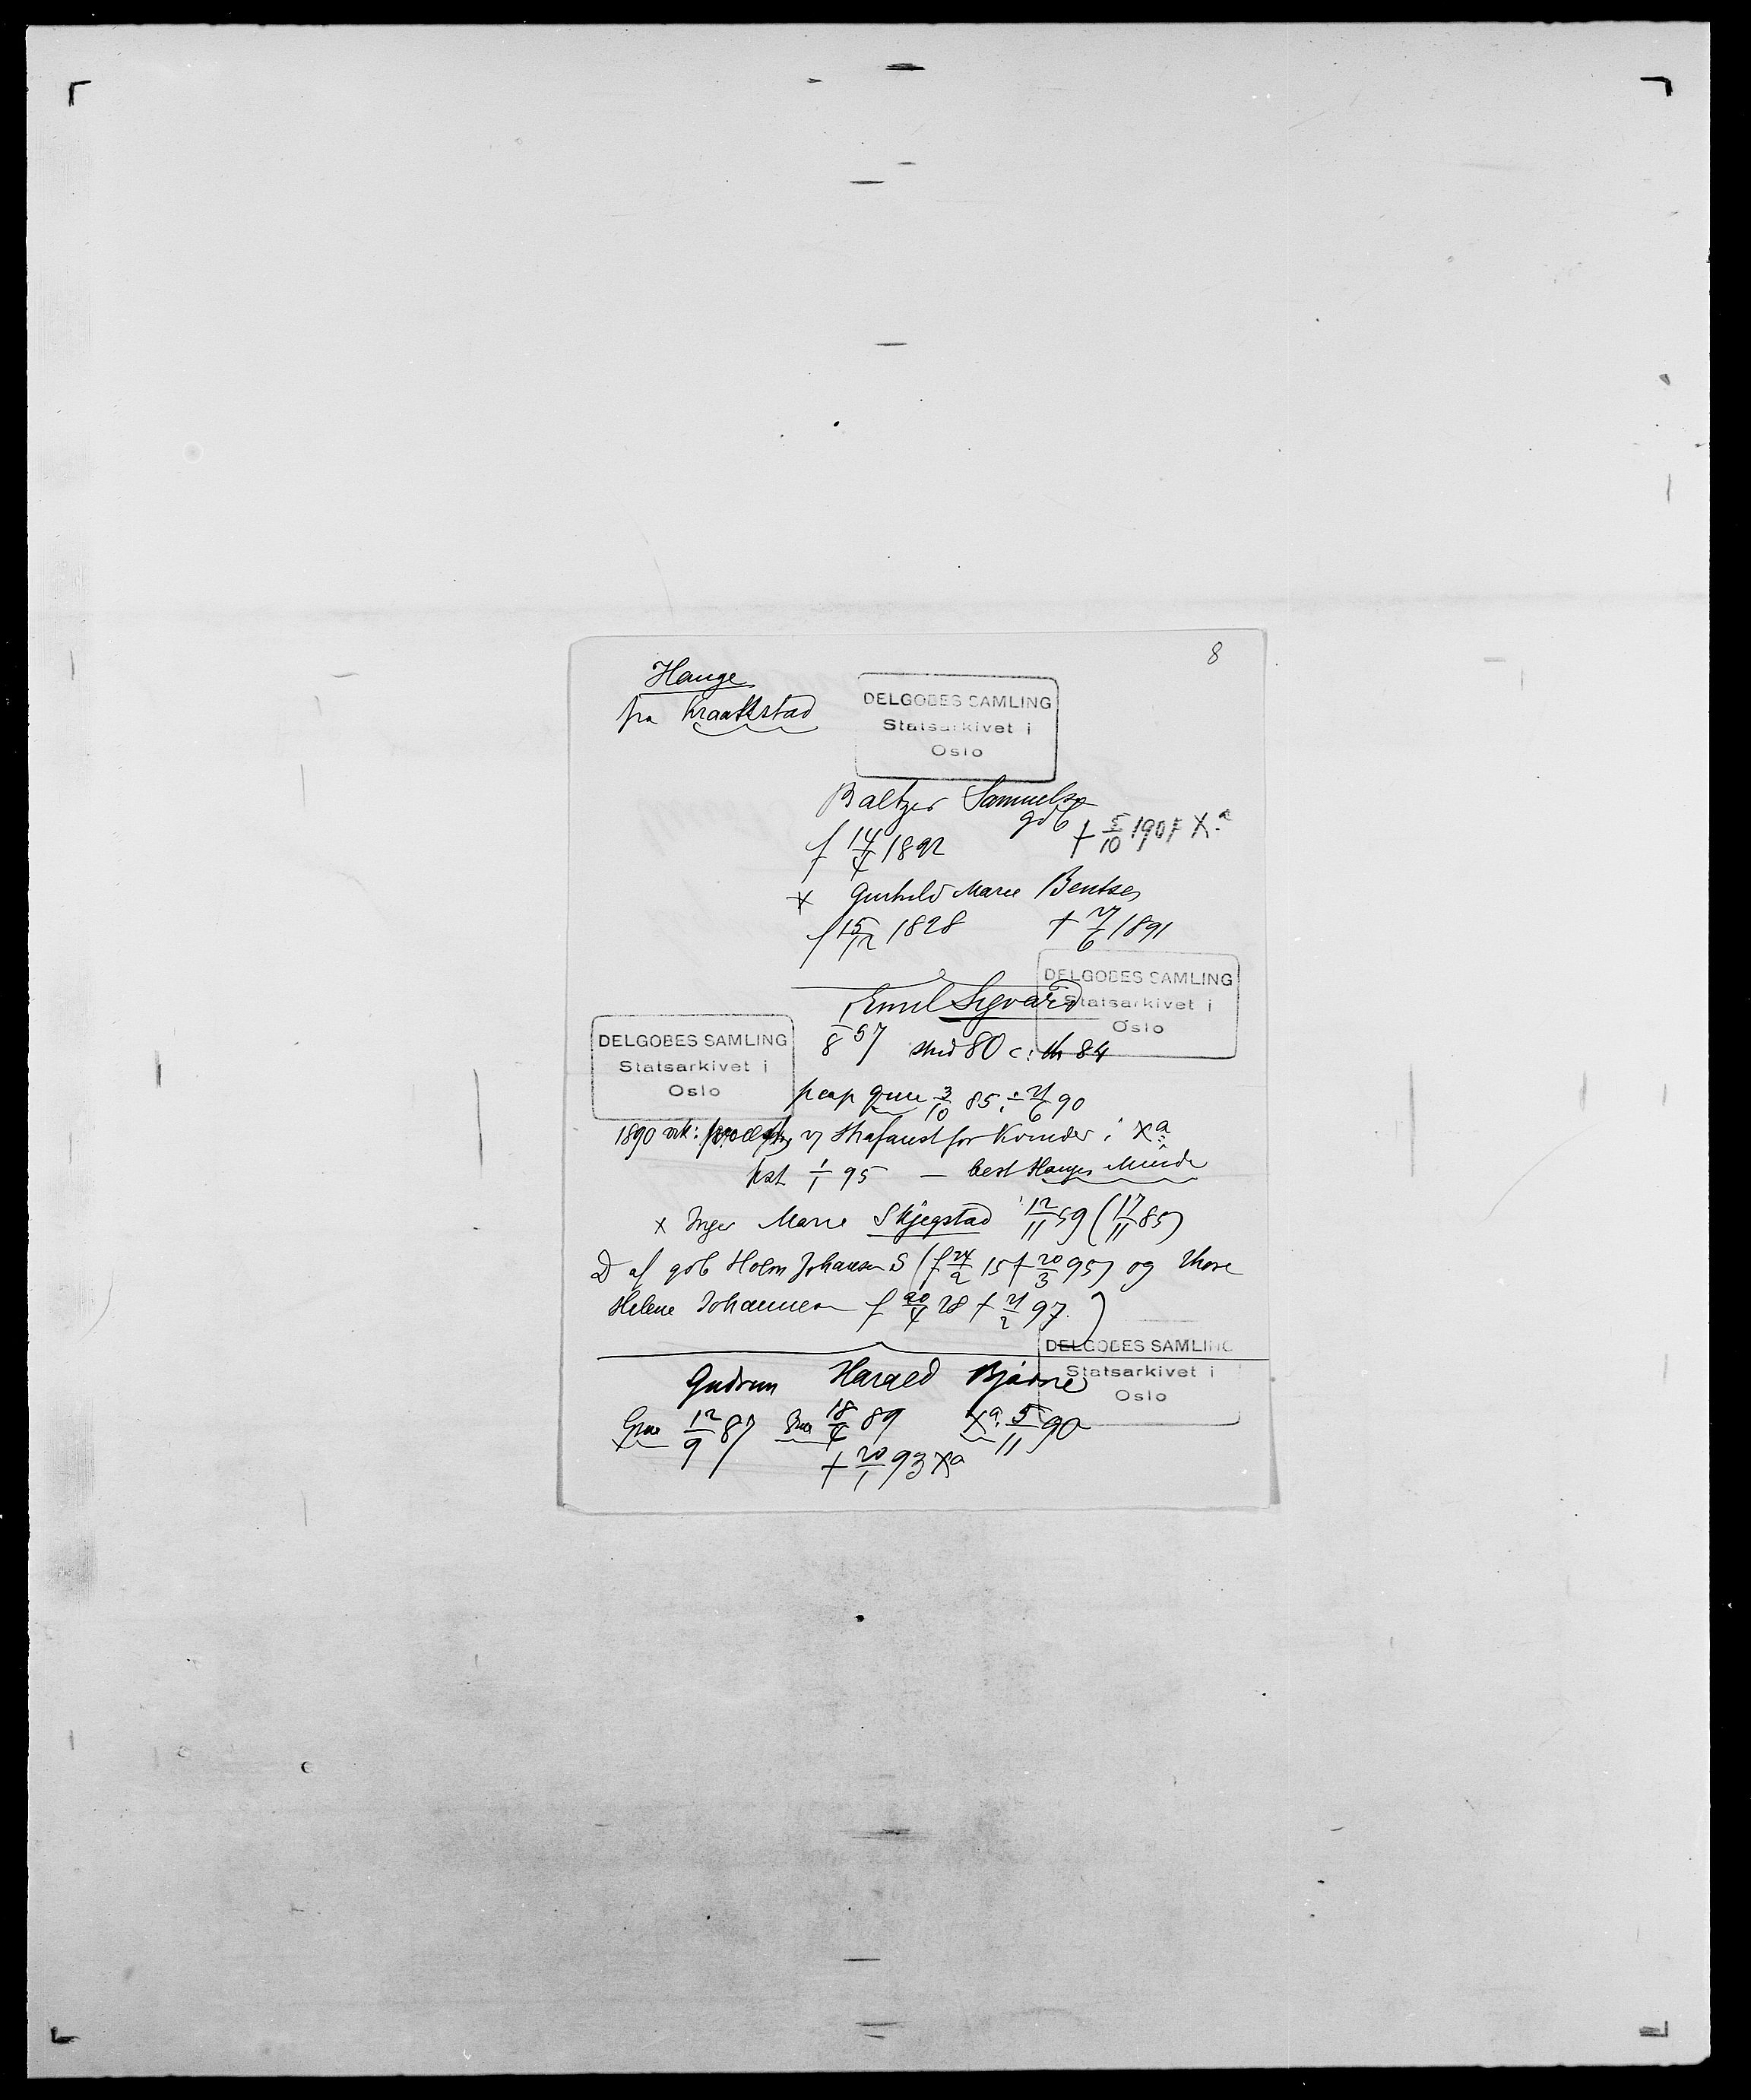 8
Hauge
fra Kraakstad
DELGOBES SAMLING
Statsarkivet i
Oslo
Baltzer Samuelsen
gdb
f 14/4 1892
† 5/10 1907 Xa
x Gunhild Marie Bentsen
f 15/12 1828 † 27/6 1891
DELGOBES SAMLING
Statsarkivet i
Oslo
Emil Sigvard
8 57 stud 80 c: th 84
DELGOBES SAMLING
Statsarkivet i
Oslo
pcap Grue 3/10 85 21/6 90
1890 v Strafanst for Kvinder i Xa
1/1 95 — best Hauges Minde
x Inger Marie Skjegstad 12/11 59 (17/11 85)
D af gdb Holm Johansen S (f 24/2 15 † 20/3 95) og Thore
Helene Johannesen f 20/4 28 † 21/2 97.)
DELGOBES SAMLING
Statsarkivet i
Oslo
Gudrun Harald Bjarne
Grue 12/9 87 Grue 18/4 89 Xa 5/11 90
† 20/1 93 Xa